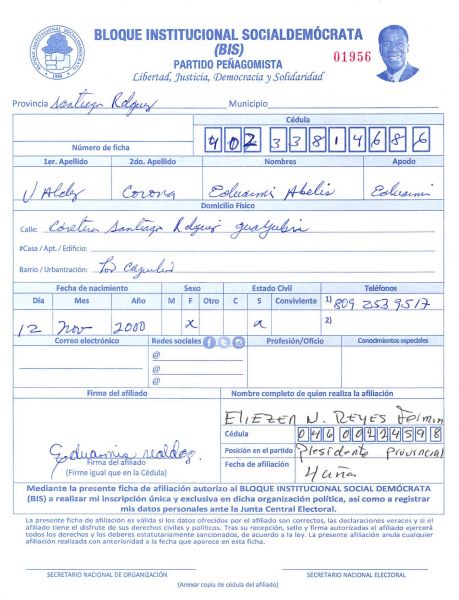 BLOQUE INSTITUCIONAL SOCIALDEMÓCRATA
BLOQUE INSTITUCIONAL SOCIALDEMÓCRATA
(BIS)
01956
PARTIDO PEÑAGOMISTA
Libertad, Justicia, Democracia y Solidaridad
Provincia Santiago Rdguez Municipio
Cédula
Número de ficha 402 3381468 6
1er. Apellido 2do. Apellido Nombres Apodo
Valdez Corona Eduarmi Abelis Eduarmi
Domicilio Físico
Calle: Santiago Rdguez
#Casa / Apt. / Edificio:
Barrio / Urbanización:
Fecha de nacimiento Sexo Estado Civil Teléfonos
Día Mes Año M F Otro C S Conviviente 1) 809 253 9517
12 Nov 2000 x x 2)
Correo electrónico Redes sociales Profesión/Oficio Conocimientos especiales
@
@
@
Firma del afiliado Nombre completo de quien realiza la afiliación
ELIEZER N. REYES
Cédula 046 0022459 8
Posición en el partido Presidente Provincial
Firma del afiliado
(Firme igual que en la Cédula)
Fecha de afiliación
Mediante la presente ficha de afiliación autorizo al BLOQUE INSTITUCIONAL SOCIAL DEMÓCRATA
(BIS) a realizar mi inscripción única y exclusiva en dicha organización política, así como a registrar
mis datos personales ante la Junta Central Electoral.
La presente ficha de afiliación es válida si los datos ofrecidos por el afiliado son correctos, las declaraciones veraces y si el
afiliado tiene el disfrute de sus derechos civiles y políticos. Tras su recepción, sello y firma autorizadas el afiliado ejercerá
todos los derechos y los deberes estatutariamente sancionados, de acuerdo a la ley. La presente afiliación anula cualquier
afiliación realizada con anterioridad a la fecha que aparece en esta ficha.
SECRETARIO NACIONAL DE ORGANIZACIÓN SECRETARIO NACIONAL ELECTORAL
(Anexar copia de cédula del afiliado)